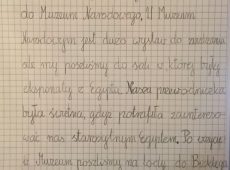 do Muzeum Narodowego. W Muzeum
Narodowym jest dużo wystaw do zwiedzania
ale my poszliśmy do sali w której były
eksponaty z Egiptu. Nasza przewodniczka
była świetna, gdyż potrafiła zaintereso-
wać nas starożytnym Egiptem. Po wizycie
w Muzeum poszliśmy na lody do